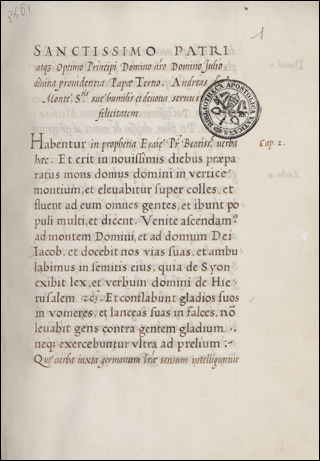 3461
1
SANCTISSIMO PATRI
atq; Optimo Principi Domino nr̄o Domino Julio
diuina prouidentia Papæ Tertio. Andreas de
Monte. S.tis sue humilis et deuotus seruus
felicitatem
BIBLIOTHECA APOSTOLICA VATICANA
Habentur in prophetia Esaie Pr Beatiss. verba
hæc. Et erit in nouissimis diebus præpa
ratus mons domus domini in vertice
montium, et eleuabitur super colles, et
fluent ad eum omnes gentes, et ibunt po
puli multi, et dicent. Venite ascendam9
ad montem Domini, et ad domum Dei
Jacob, et docebit nos vias suas, et ambu
labimus in semitis eius, quia de Syon
exibit lex, et verbum domini de Hie
rusalem &c. Et conflabunt gladios suos
in vomeres, et lanceas suas in falces, nō
leuabit gens contra gentem gladium
neq; exercebuntur vltra ad prelium :~
Que verba iuxta germanum literæ sensum intelliguntur
Cap. 2.